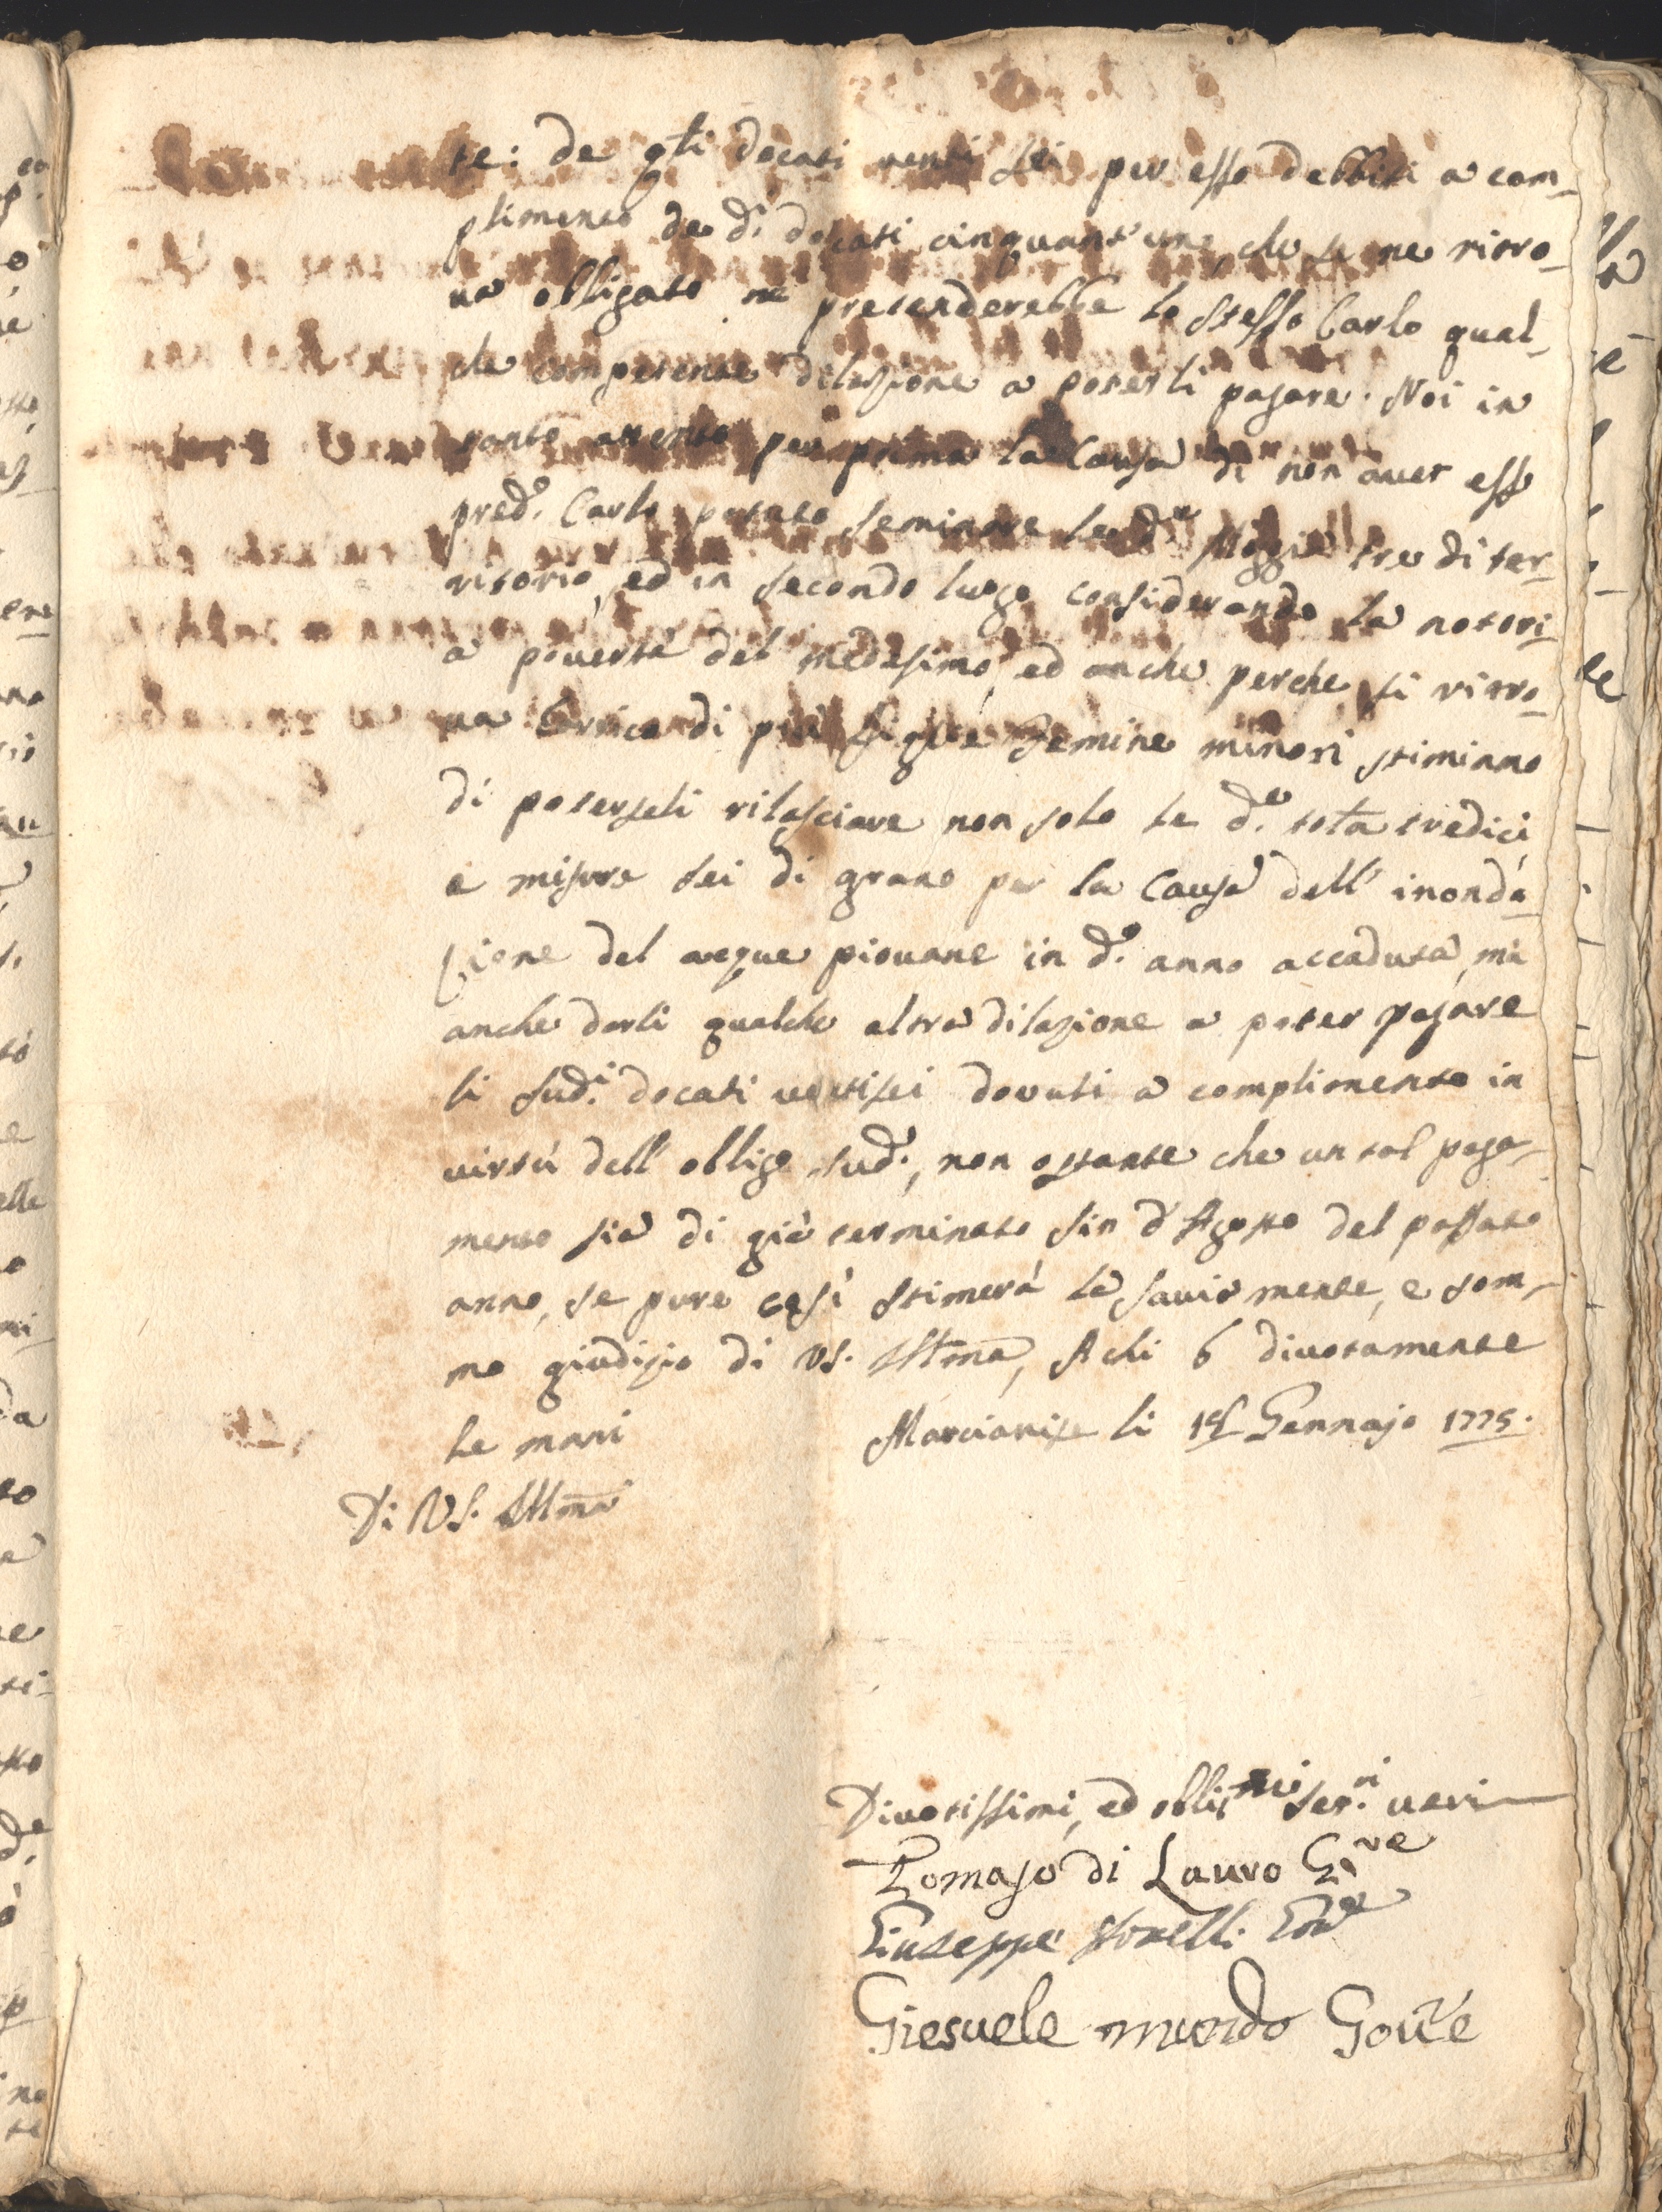 te: de q.ti docati venti sei per esso debbiti a com-
plimento de d.i docati cinquant'uno, che se ne ritro-
va obligato ne pretenderebbe lo stesso Carlo qual-
che competente dilazione a poterli pagare. Noi in
tanto attento per prima la Causa di non aver esso
pred.o Carlo potuto seminare le d.e Moggie tre di ter-
ritorio, ed in secondo luogo considerando la notori-
a povertà del medesimo, ed anche perche si ritro-
va Carico di più figlie Femine minori stimiamo
di poterseli rilasciare non solo le d.e tt.a tredici
e misure sei di grano per la Causa dell' inonda-
zione del acque piovane in d.o anno accaduta, ma
anche darli qualche altra dilazione a poter pagare
li sud.i docati ventisei dovuti a complimento in
virtù dell' obligo sud.o, non ostante che un tal paga-
mento sia di già terminato sin d'Agosto del passato
anno, se pure così stimerà la savia mente, e som-
mo giudizio di VS. Ill.ma, A chi b divotamente
le mani
Marcianise li Gennajo 1775.
Di VS. Ill.ma
Divotissimi, ed obblig.mi ser.ri veri
Tomaso di Lauro G.ve
Giuseppe
Giesuele mundo Gov.re